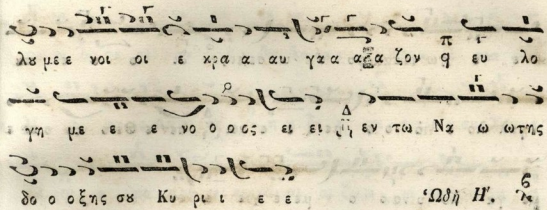 λυ με ε νοι οι οι ε κρα α αυ γαα α αα ζον π q ευ λο
γη με ε ε νο ο ο ος ει ει Δ εν τω Να ω ωτης
δο ο οξης σου Κυ ρι ι ε ε Ὠδὴ Η΄.